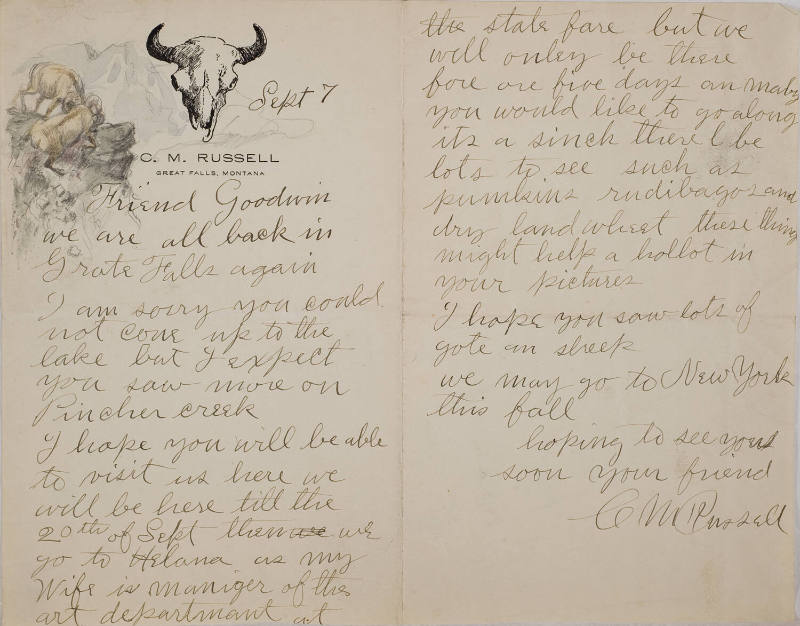 Sept 7
C. M. RUSSELL
GREAT FALLS, MONTANA
Friend Goodwin
we are all back in
Grate Falls again
I am sorry you could
not come up to the
lake but I expect
you saw more on
Pincher creek
I hope you will be able
to visit us here we
will be here till the
20th of Sept then we
go to Helana as my
Wife is maniger of the
art departmant at
the state fare but we
will onley be there
fore ore five days an maby
you would like to go along
its a sinch there l be
lots to see such as
pumkins rudibagos and
dry land wheet these thing
might help a hollot in
your pictures
I hope you saw lots of
gote an sheep
we may go to New York
this fall
hoping to see you
soon your friend
C M Russell